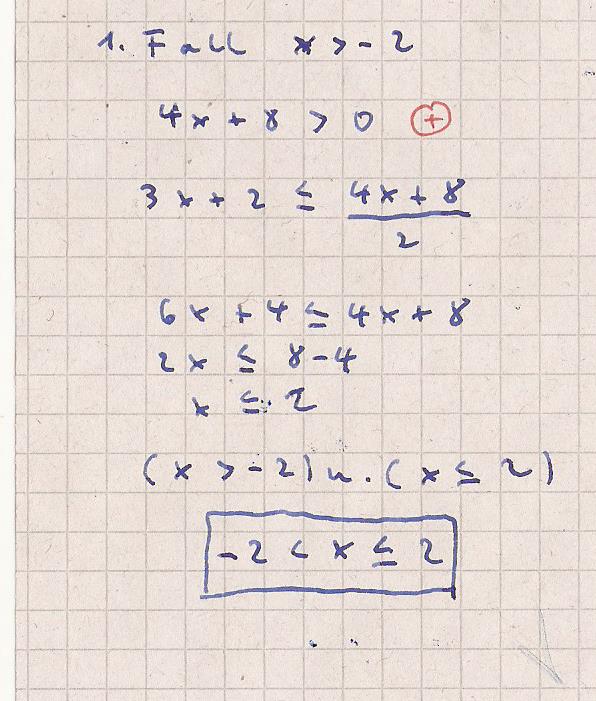 1. Fall x > -2
4x + 8 > 0 (+)
3x + 2 ≤ 4x + 8
2
6x + 4 ≤ 4x + 8
2x ≤ 8 - 4
x ≤ 2
(x > -2) u. (x ≤ 2)
-2 < x ≤ 2